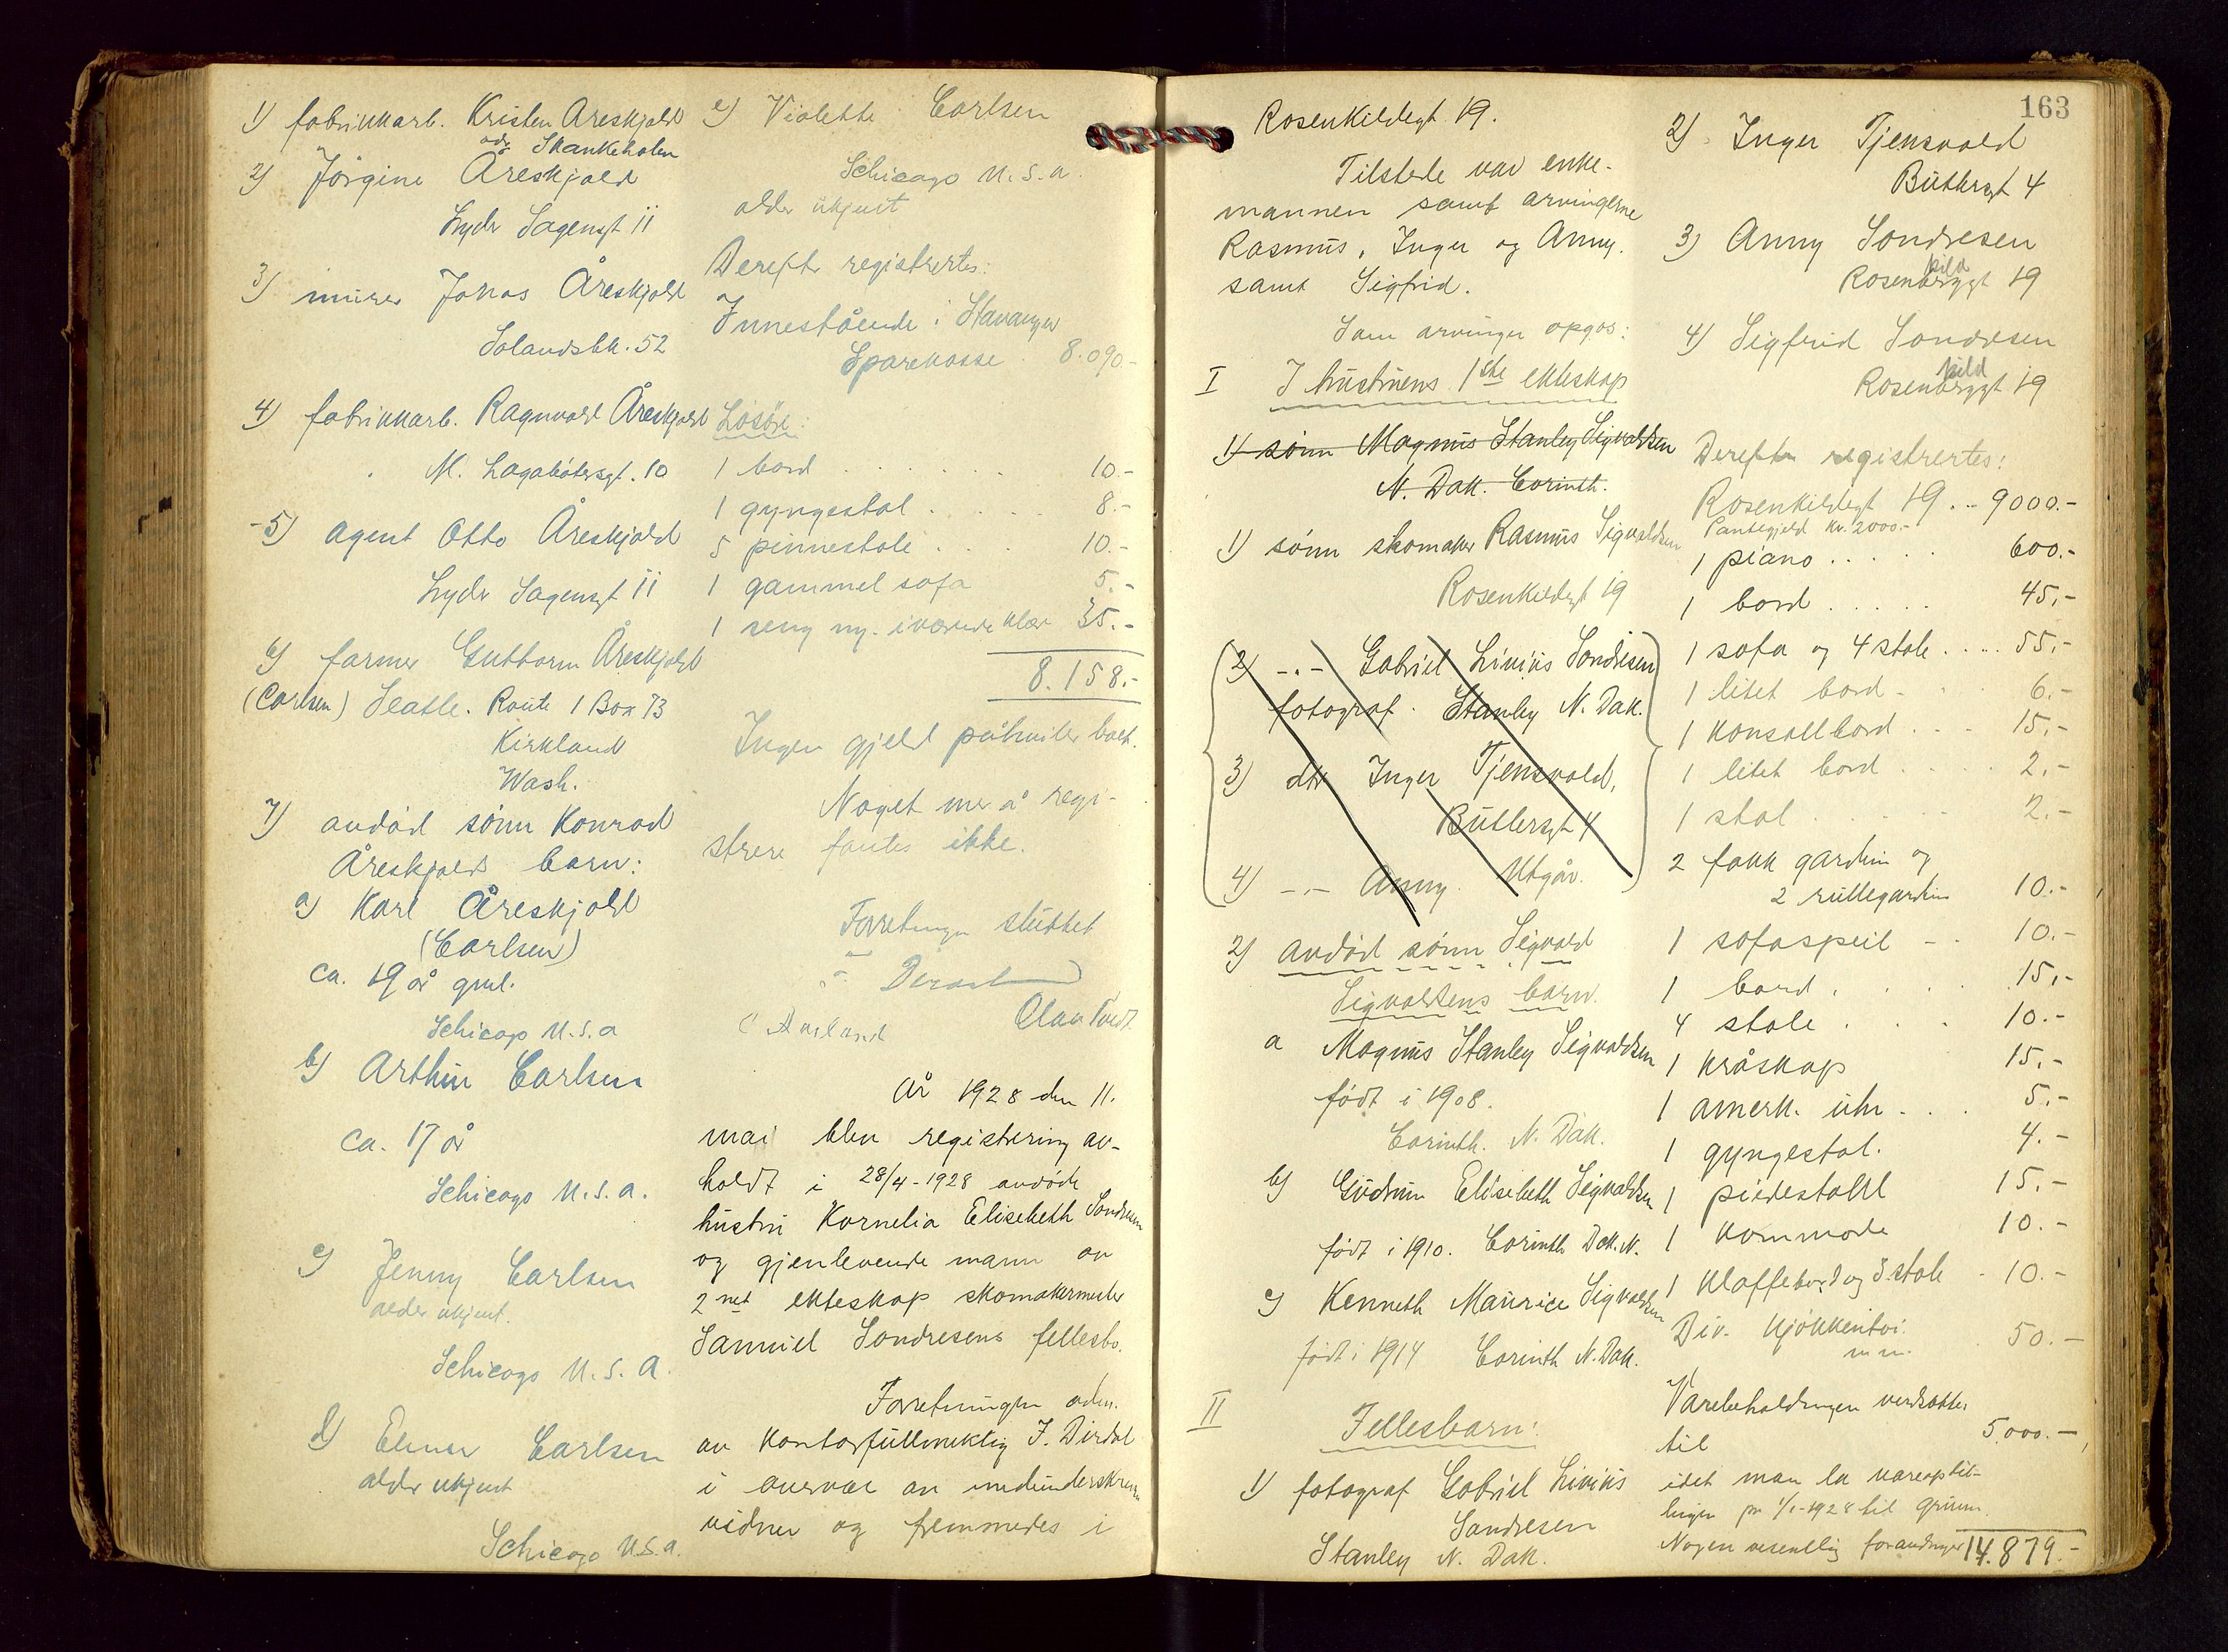 1) fabrikkarb. Kristen Åreskjold
adr. Skankeholen
2) Jörgine Åreskjold
Lyder Sagensgt 11
3) murer Jonas Åreskjold
Solandsbk. 52
4) fabrikkarb. Ragnvald Åreskjold
M. Lagabötersgt. 10
5) agent Otto Åreskjold
Lyder Sagensgt 11
6) farmer Guttorm Åreskjold
(Carlsen) Seatle. Route 1 Box 73
Kirkland
Wash.
7) avdöd sönn Konrad
Åreskjolds barn:
a) Karl Åreskjold
(Carlsen)
ca. 19 år gml.
Schicago U.S.A
b) Arthur Carlsen
ca. 17 år
Schicago U.S.A.
c) Jenny Carlsen
alder ukjent.
Schicago U.S.A.
d) Elmer Carlsen
alder ukjent
Schicago U.S.A.
e) Violette Carlsen
Schicago U.S.A.
alder ukjent
Derefter registrertes:
Innestående i Stavanger
Sparekasse 8.090.-
Lösöre:
1 bord 10.-
1 gyngestol 8.-
5 pinnestole 10.-
1 gammel sofa 5.-
1 seng m. iværende klær 35.-
8.158.-
Ingen gjeld påhviler boet.
Noget mer å regi-
strere fantes ikke.
Forretningen sluttet
Olav Tvedt
År 1928 den 11.
mai blev registrering av-
holdt i 28/4-1928 avdöde
hustru Kornelia Elisebeth Sondresen
og gjenlevende mann av
2net ekteskap skomakermester
Samuel Sondresens fellesbo.
Forretningen adm.
av kontorfullmektig J. Dirdal
i overvær av medunderskrevne
vidner og fremmedes i
163
Rosenkildegt 19.
Tilstede var enke-
mannen samt arvingerne
Rasmus, Inger og Anny.
samt Sigfrid.
Som arvinger opgos:
I I hustruens 1ste ekteskap
1) sönn Magnus Stanley Sigvaldsen
N. Dak. Corinth.
1) sönn skomaker Rasmus Sigvaldsen
Rosenkildegt 19
2) -.- Gabriel Livius Sondresen
fotograf. Stanley N. Dak.
3) dtr Inger Tjensvold,
Butlersgt 4
4) -.- Anny. Utgår.
2) avdöd sönn Sigvald
Sigvaldsens barn.
a Magnus Stanley Sigvaldsen
født i 1908.
Corinth. N. Dak.
b) Gudrun Elisebeth Sigvaldsen
født i 1910. Corinth Dak. N.
c) Kenneth Maurice Sigvaldsen
født i 1914 Corinth N. Dak.
II Fellesbarn:
1) fotograf Gabriel Livius
Sondresen
Stanley N. Dak.
2) Inger Tjensvold
Butlersgt 4
3) Anny Sondresen
kild
Rosenberggt 19
4) Sigfrid Sondresen
kild
Rosenberggt 19
Derefter registrertes:
Rosenkildegt 19 .. 9000.-
Pantegjeld kr. 2000.-
1 piano 600.-
1 bord 45.-
1 sofa og 4 stole 55.-
1 litet bord 6.-
1 konsollbord 15.-
1 litet bord 2.-
1 stol 2.-
2 fakk gardin og
2 rullegardin 10.-
1 sofaspeil 10.-
1 bord 15.-
4 stole 10.-
1 kråskap 15.-
1 amerk. uhr 5.-
1 gyngestol. 4.-
1 piedestall 15.-
1 kommode 10.-
1 klaffebord og 3 stole 10.-
Div. kjökkentöi
m.m. 50.-
Varebeholdningen verdsattes
til 5.000.-
idet man la vareoptel-
lingen pr 1/1-1928 til grunn.
Nogen vesentlig forandringer 14.879.-